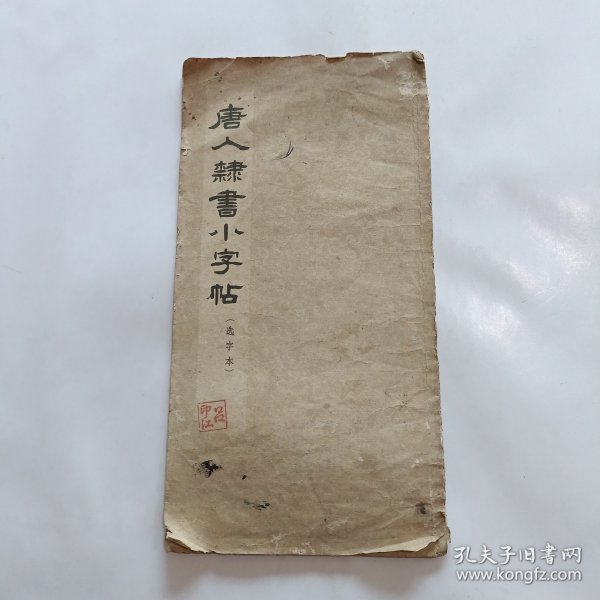 唐人隸書小字帖
（选字本）
吕
印江
孔夫子旧書网
www.kongfz.com